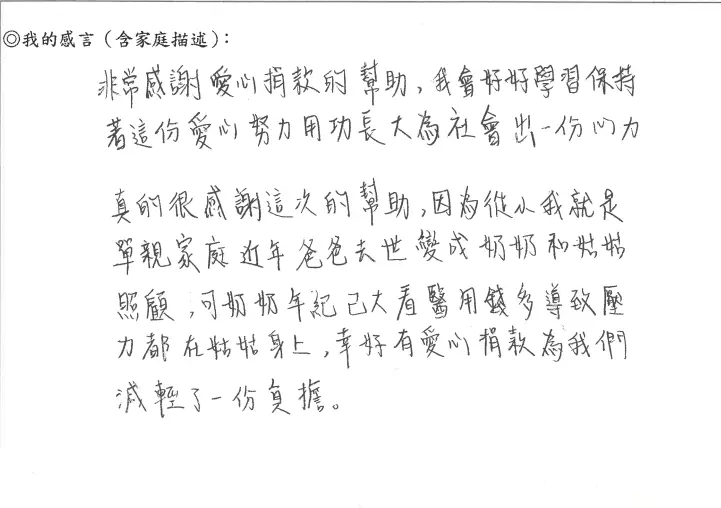 ◎我的感言（含家庭描述）：
非常感謝愛心捐款的幫助，我會好好學習保持
著這份愛心努力用功長大為社會出一份心力
真的很感謝這次的幫助，因為從小我就是
單親家庭近年爸爸去世變成奶奶和姑姑
照顧，可奶奶年紀已大看醫用錢多導致壓
力都在姑姑身上，幸好有愛心捐款為我們
減輕了一份負擔。